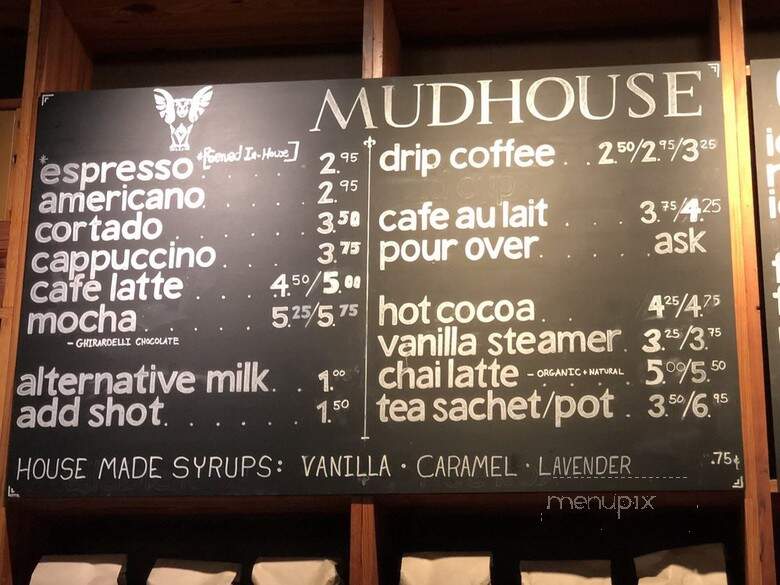 MUDHOUSE
*espresso . . 2.95
americano . . . . 2.95
cortado . . . . . 3.50
cappuccino . . . . 3.75
cafe latte . . . . 4.50/5.00
mocha . . . . . 5.25/5.75
- GHIRARDELLI CHOCOLATE
alternative milk . . 1.00
add shot . . . . . 1.50
drip coffee . . 2.50/2.95/3.25
cafe au lait . . . . 3.75/4.25
pour over . . . . . ask
hot cocoa . . . . 4.25/4.75
vanilla steamer . 3.25/3.75
chai latte - ORGANIC + NATURAL . 5.00/5.50
tea sachet/pot . 3.50/6.95
HOUSE MADE SYRUPS: VANILLA · CARAMEL · LAVENDER .75¢
menupix